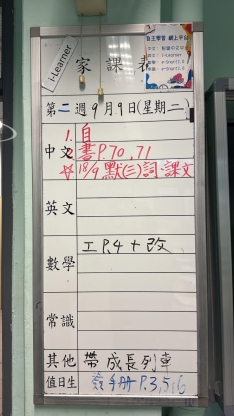 i-Learner
自主學習 網上平台
家課表
第二週 9月9日(星期二)
1. 自
中文 書P.70, 71
☆ 18/9 默(三)詞、課文
英文
數學 工P.4 + 改
常識
其他 帶 成長列車
值日生 P.3,5,6